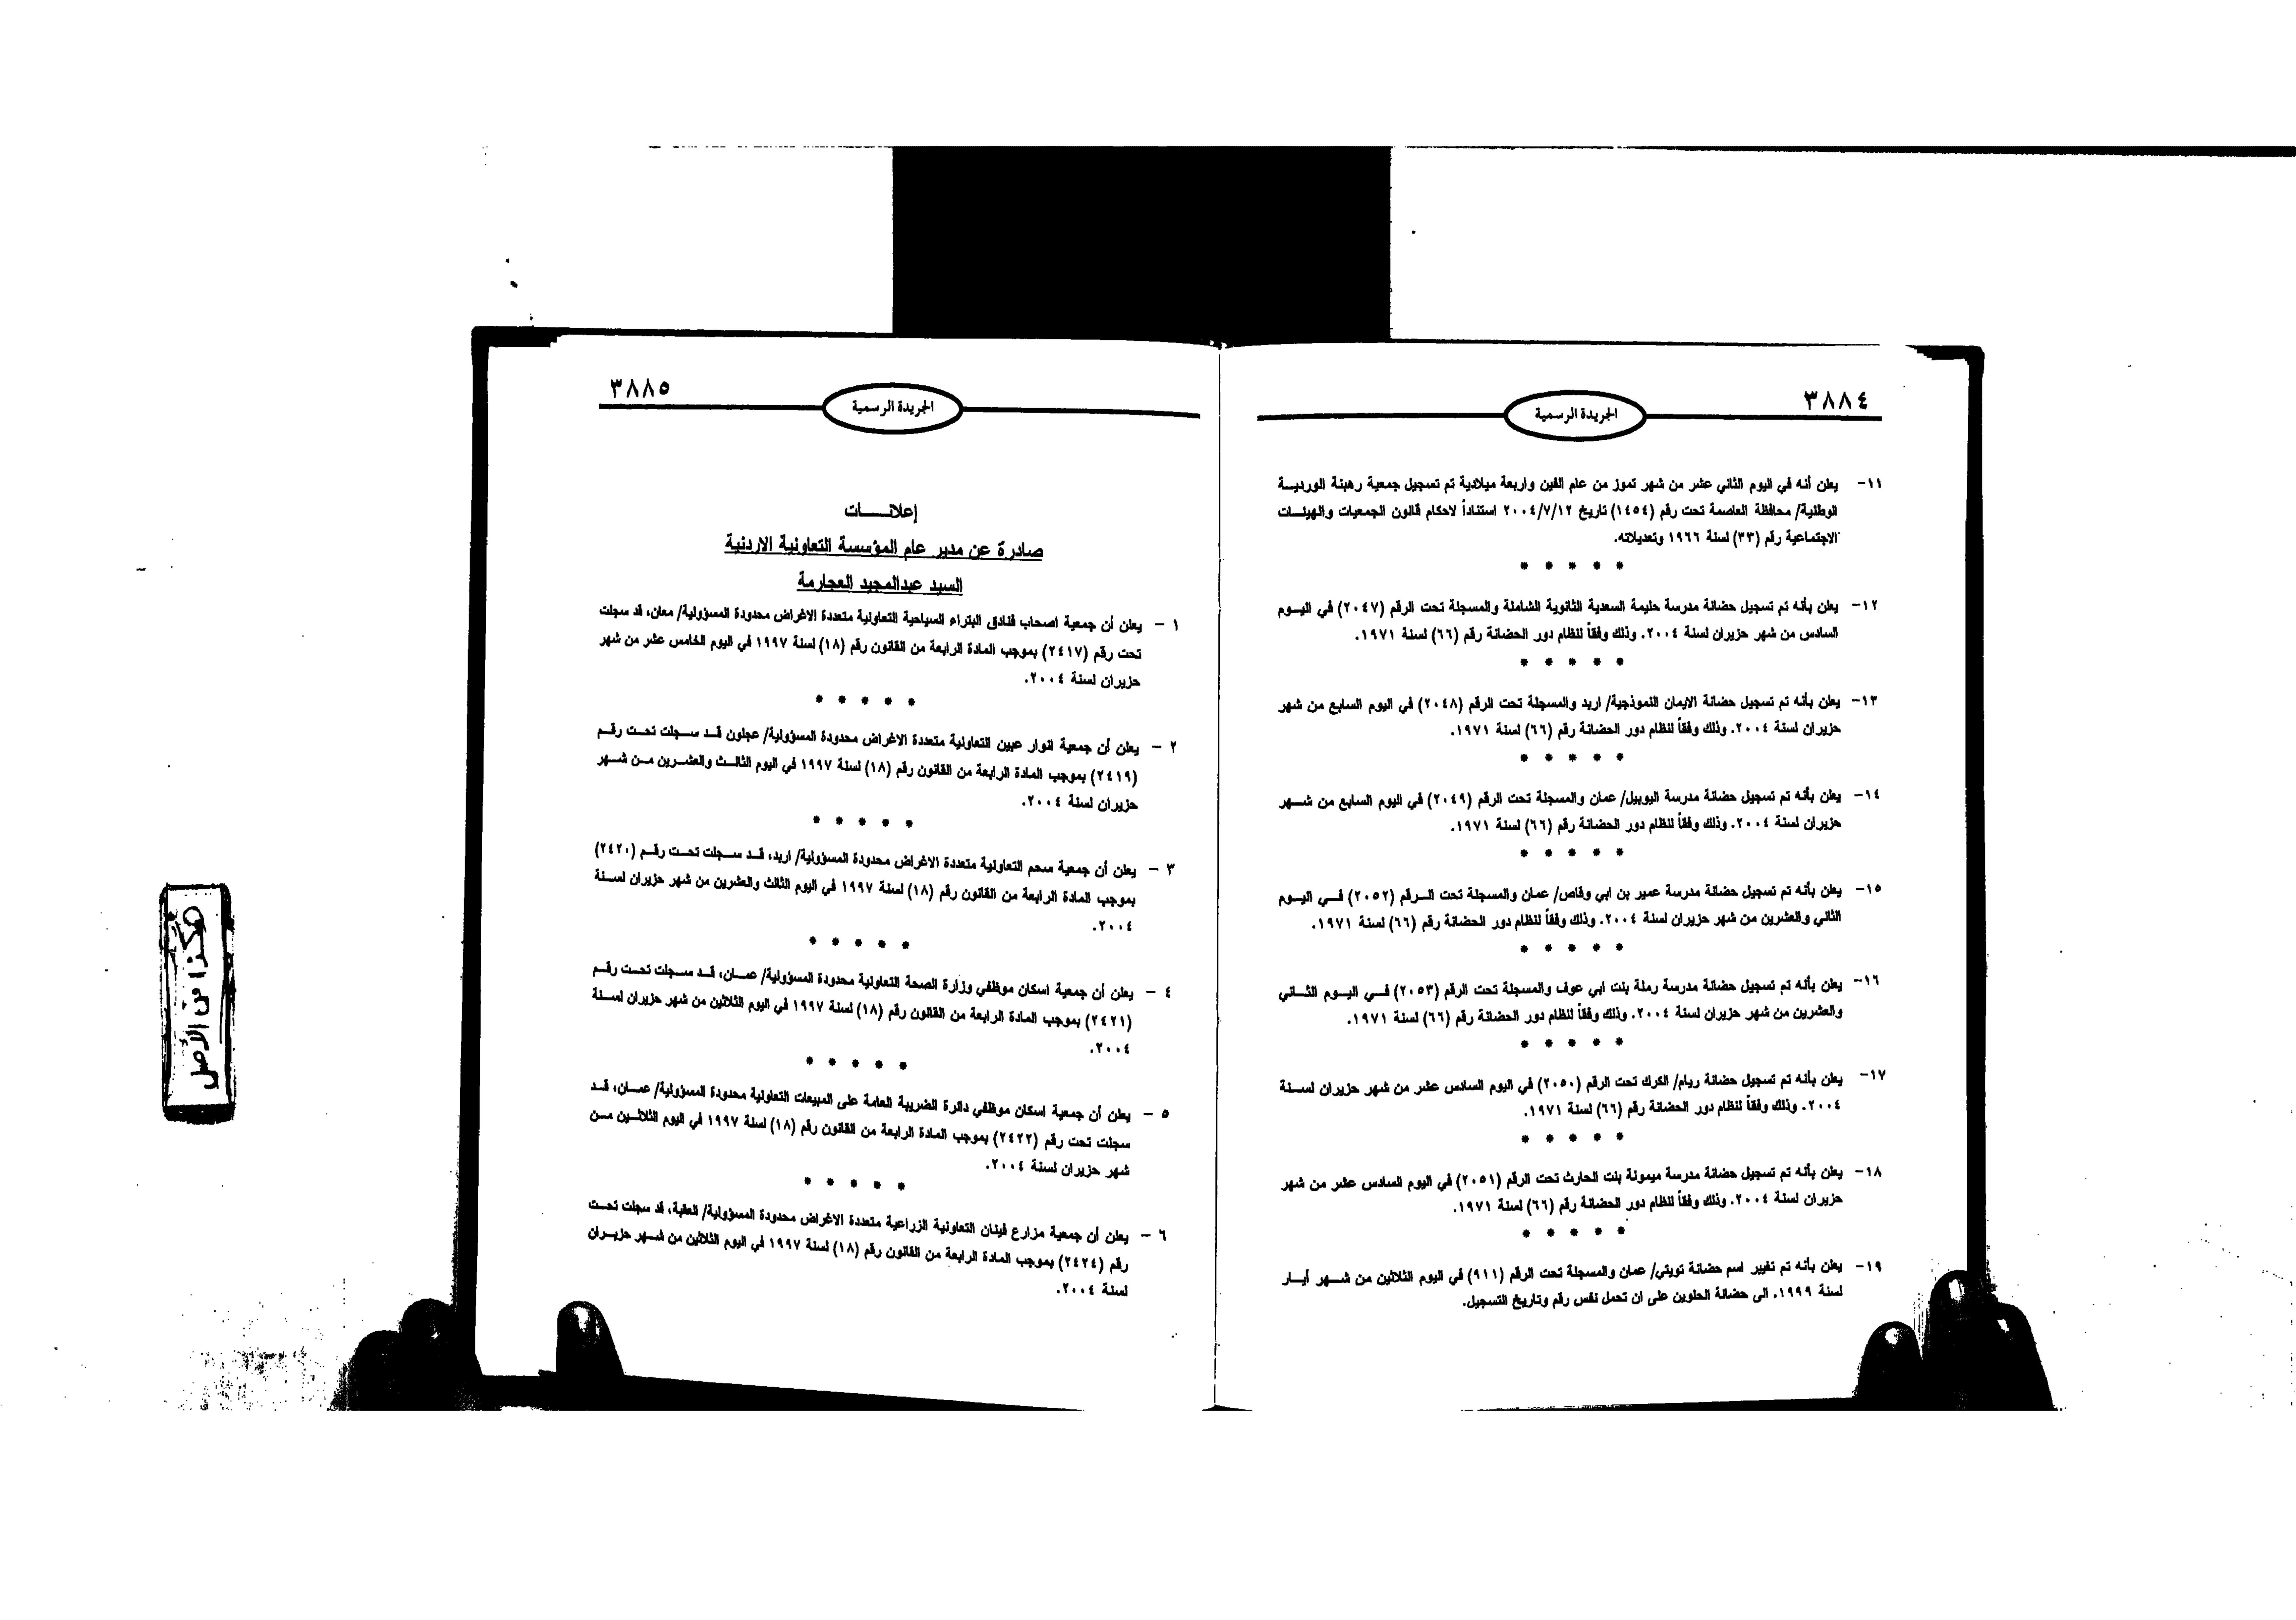 ٣٨٨٤
الجريدة الرسمية
١١- يعلن أنه في اليوم الثاني عشر من شهر تموز من عام الفين واربعة ميلادية تم تسجيل جمعية رهبنة الورديــة
الوطنية/ محافظة العاصمة تحت رقم (١٤٥٤) تاريخ ٢٠٠٤/٧/١٢ استناداً لاحكام قانون الجمعيات والهيئات
الاجتماعية رقم (٣٣) لسنة ١٩٦٦ وتعديلاته.
* * * * *
١٢- يعلن بأنه تم تسجيل حضانة مدرسة حليمة السعدية الثانوية الشاملة والمسجلة تحت الرقم (٢٠٤٧) في اليــوم
السادس من شهر حزيران لسنة ٢٠٠٤. وذلك وفقاً لنظام دور الحضانة رقم (٦٦) لسنة ١٩٧١.
* * * * *
١٣- يعلن بأنه تم تسجيل حضانة الايمان النموذجية/ اربد والمسجلة تحت الرقم (٢٠٤٨) في اليوم السابع من شهر
حزيران لسنة ٢٠٠٤. وذلك وفقاً لنظام دور الحضانة رقم (٦٦) لسنة ١٩٧١.
* * * * *
١٤- يعلن بأنه تم تسجيل حضانة مدرسة اليوبيل/ عمان والمسجلة تحت الرقم (٢٠٤٩) في اليوم السابع من شـــهر
حزيران لسنة ٢٠٠٤. وذلك وفقاً لنظام دور الحضانة رقم (٦٦) لسنة ١٩٧١.
* * * * *
١٥- يعلن بأنه تم تسجيل حضانة مدرسة عمير بن ابي وقاص/ عمان والمسجلة تحت الــرقم (٢٠٥٢) فــي اليــوم
الثاني والعشرين من شهر حزيران لسنة ٢٠٠٤. وذلك وفقاً لنظام دور الحضانة رقم (٦٦) لسنة ١٩٧١.
* * * * *
١٦- يعلن بأنه تم تسجيل حضانة مدرسة رملة بنت ابي عوف والمسجلة تحت الرقم (٢٠٥٣) فــي اليــوم الثــاني
والعشرين من شهر حزيران لسنة ٢٠٠٤. وذلك وفقاً لنظام دور الحضانة رقم (٦٦) لسنة ١٩٧١.
* * * * *
١٧- يعلن بأنه تم تسجيل حضانة ريام/ الكرك تحت الرقم (٢٠٥٠) في اليوم السادس عشر من شهر حزيران لســنة
٢٠٠٤. وذلك وفقاً لنظام دور الحضانة رقم (٦٦) لسنة ١٩٧١.
* * * * *
١٨- يعلن بأنه تم تسجيل حضانة مدرسة ميمونة بنت الحارث تحت الرقم (٢٠٥١) في اليوم السادس عشر من شهر
حزيران لسنة ٢٠٠٤. وذلك وفقاً لنظام دور الحضانة رقم (٦٦) لسنة ١٩٧١.
* * * * *
١٩- يعلن بأنه تم تغيير اسم حضانة تويتي/ عمان والمسجلة تحت الرقم (٩١١) في اليوم الثلاثين من شـــهر أيــار
لسنة ١٩٩٩. الى حضانة الحلوين على ان تحمل نفس رقم وتاريخ التسجيل.
٣٨٨٥
الجريدة الرسمية
إعلانـــــات
صادرة عن مدير عام المؤسسة التعاونية الاردنية
السيد عبدالمجيد العجارمة
١ - يعلن أن جمعية اصحاب فنادق البتراء السياحية التعاونية متعددة الاغراض محدودة المسؤولية/ معان، قد سجلت
تحت رقم (٢٤١٧) بموجب المادة الرابعة من القانون رقم (١٨) لسنة ١٩٩٧ في اليوم الخامس عشر من شهر
حزيران لسنة ٢٠٠٤.
* * * * *
٢ - يعلن أن جمعية انوار عبين التعاونية متعددة الاغراض محدودة المسؤولية/ عجلون قــد ســجلت تحــت رقــم
(٢٤١٩) بموجب المادة الرابعة من القانون رقم (١٨) لسنة ١٩٩٧ في اليوم الثالــث والعشــرين مــن شــهر
حزيران لسنة ٢٠٠٤.
* * * * *
٣ - يعلن أن جمعية سحم التعاونية متعددة الاغراض محدودة المسؤولية/ اربد، قــد ســجلت تحــت رقــم (٢٤٢٠)
بموجب المادة الرابعة من القانون رقم (١٨) لسنة ١٩٩٧ في اليوم الثالث والعشرين من شهر حزيران لســنة
٢٠٠٤.
* * * * *
٤ - يعلن أن جمعية اسكان موظفي وزارة الصحة التعاونية محدودة المسؤولية/ عمــان، قــد ســجلت تحــت رقــم
(٢٤٢١) بموجب المادة الرابعة من القانون رقم (١٨) لسنة ١٩٩٧ في اليوم الثلاثين من شهر حزيران لســنة
٢٠٠٤.
* * * * *
٥ - يعلن أن جمعية اسكان موظفي دائرة الضريبة العامة على المبيعات التعاونية محدودة المسؤولية/ عمــان، قــد
سجلت تحت رقم (٢٤٢٢) بموجب المادة الرابعة من القانون رقم (١٨) لسنة ١٩٩٧ في اليوم الثلاثــين مــن
شهر حزيران لسنة ٢٠٠٤.
* * * * *
٦ - يعلن أن جمعية مزارع فينان التعاونية الزراعية متعددة الاغراض محدودة المسؤولية/ العقبة، قد سجلت تحــت
رقم (٢٤٢٤) بموجب المادة الرابعة من القانون رقم (١٨) لسنة ١٩٩٧ في اليوم الثلاثين من شــهر حزيــران
لسنة ٢٠٠٤.
هكذا من الأصل